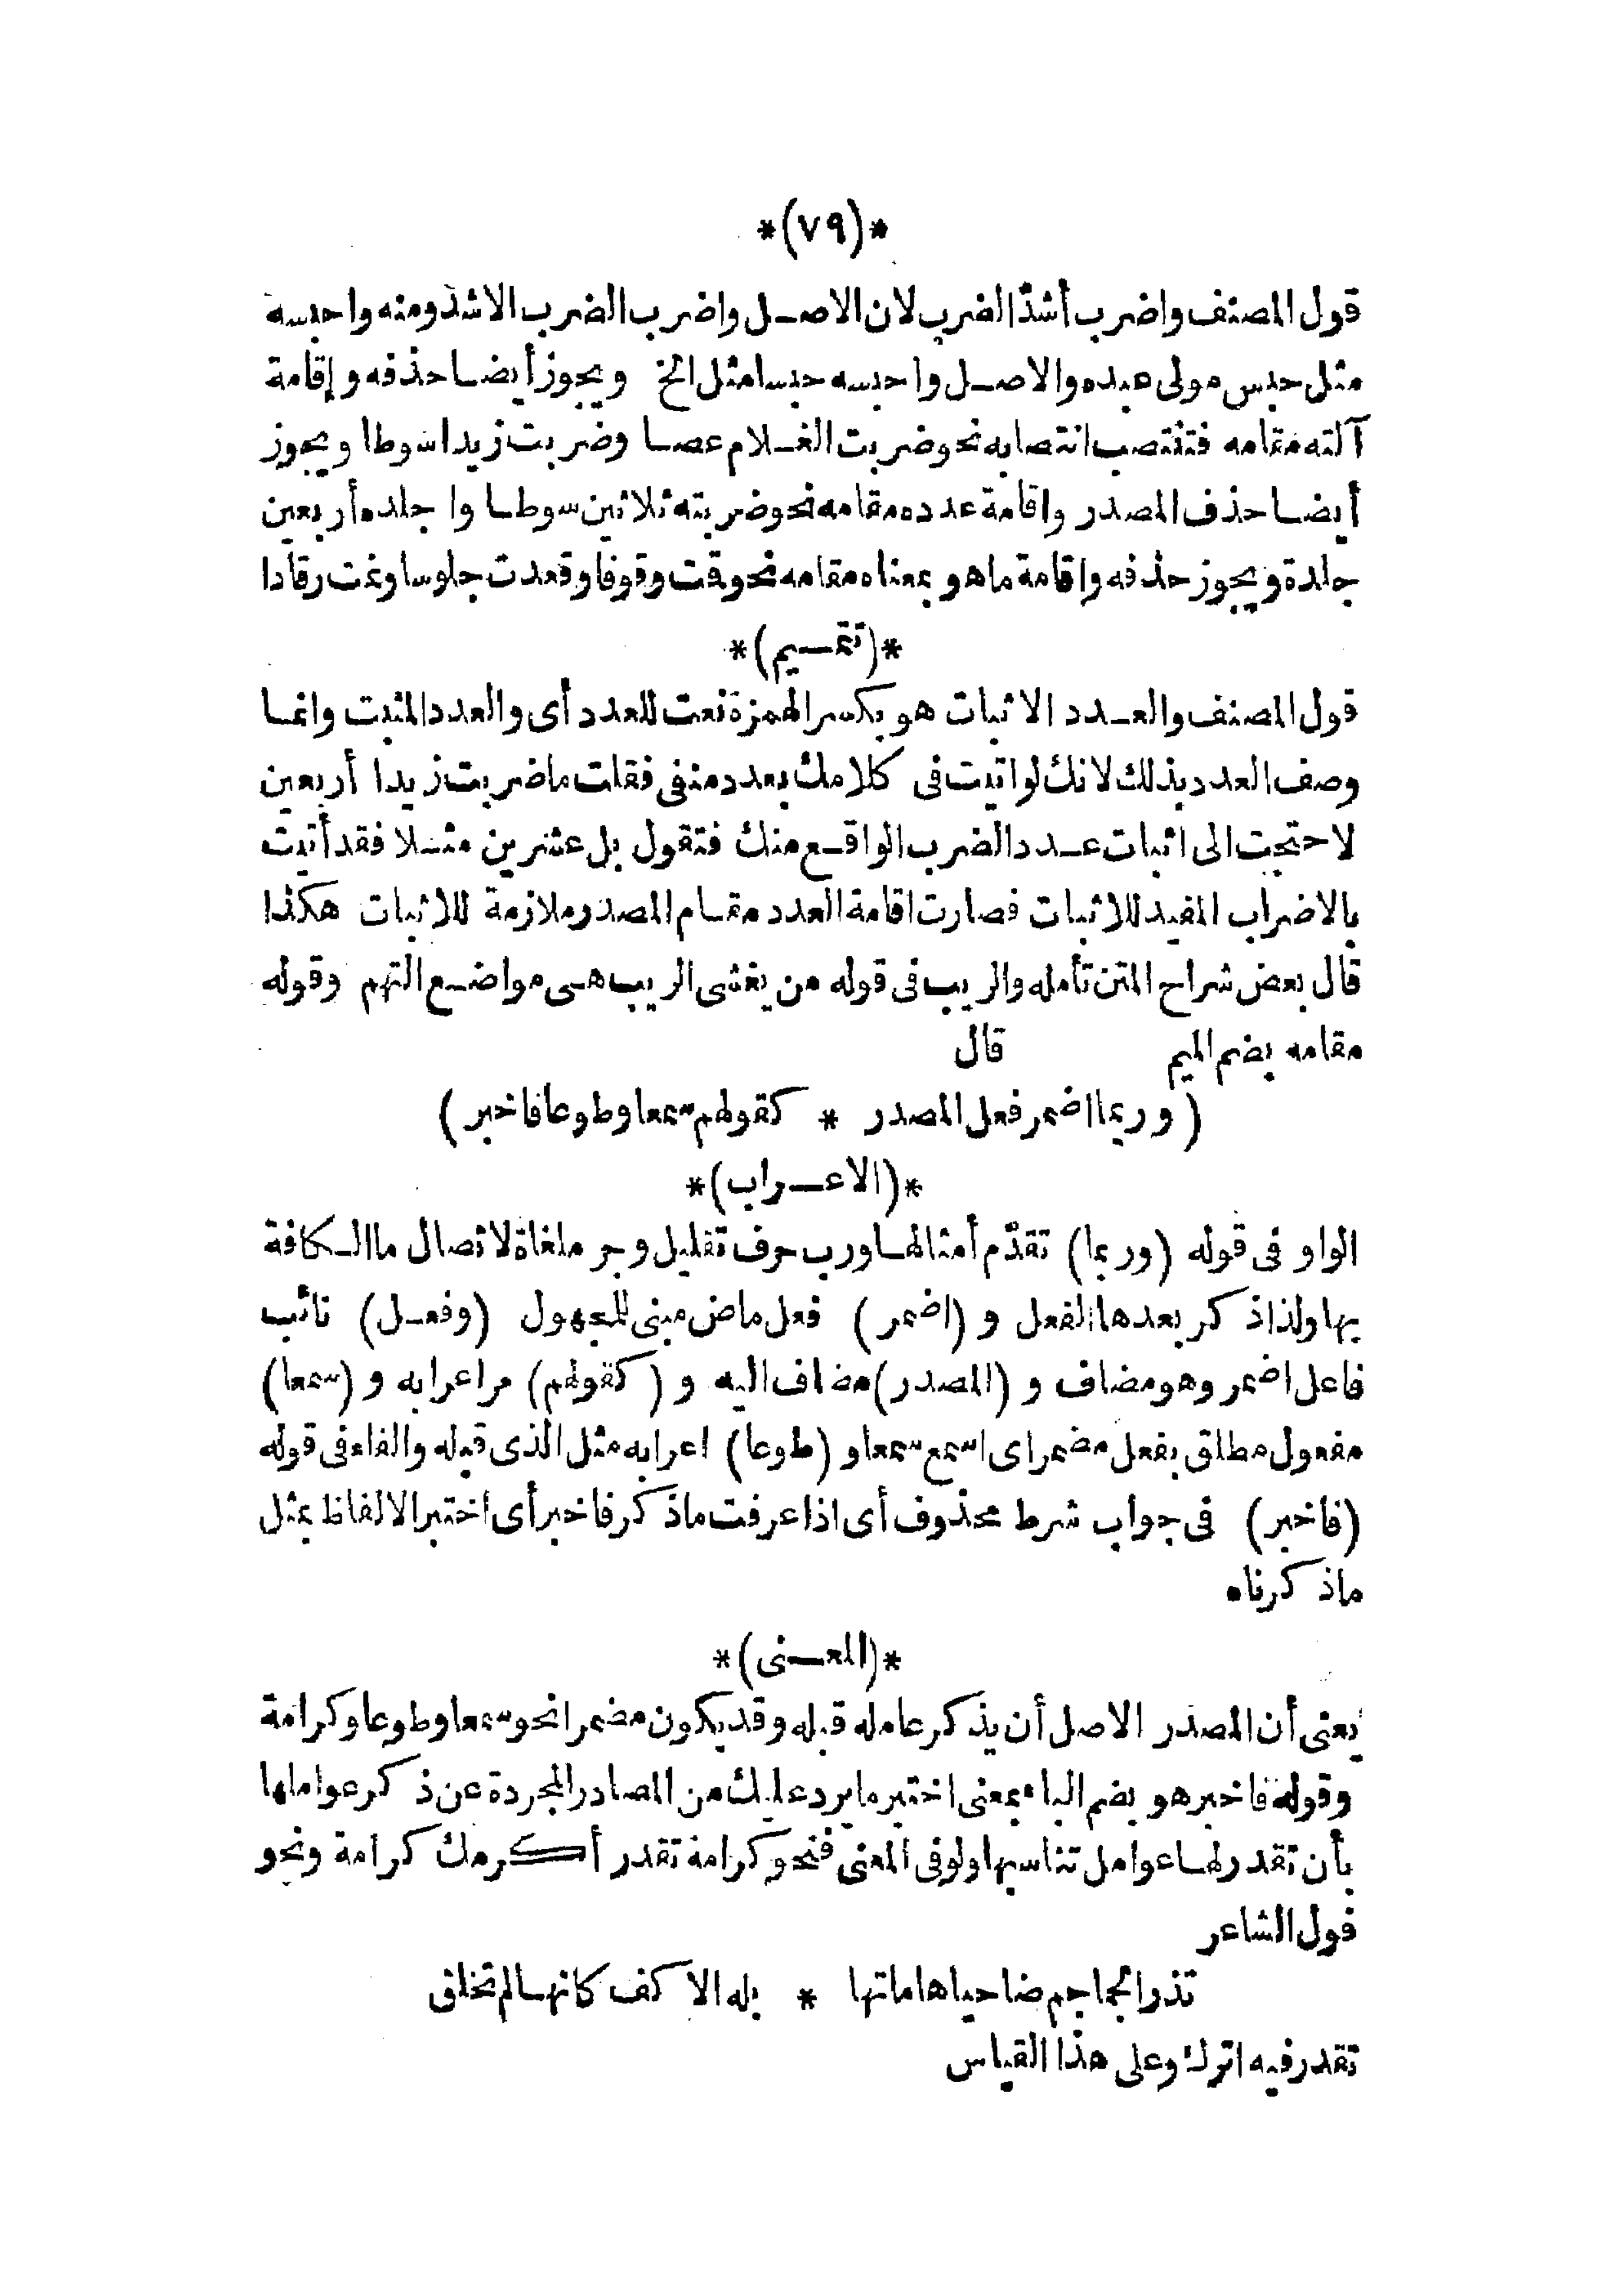 *(٧٩)*
قول المصنف واضرب أشدّ الضرب لان الاصل واضرب الضرب الاشد ومنه واحبسه
مثل حبس مولى عبده والاصل واحبسه حبسا مثل الخ ويجوز أيضا حذفه وإقامة
آلته مقامه فتنتصب انتصابه نحو ضربت الغلام عصا وضربت زيدا سوطا ويجوز
أيضا حذف المصدر واقامة عدده مقامه نحو ضربته ثلاثين سوطا واجلده أربعين
جلدة ويجوز حذفه واقامة ما هو بمعناه مقامه نحو قمت وقوفا وقعدت جلوسا ونمت رقادا
*(تتميم)*
قول المصنف والعدد الاثبات هو بكسر الهمزة نعت للعدد أى والعدد المثبت وانما
وصف العدد بذلك لانك لو اتيت فى كلامك بعدد منفى فقلت ما ضربت زيدا أربعين
لاحتجت الى اثبات عدد الضرب الواقع منك فتقول بل عشرين مثلا فقد أتيت
بالاضراب المفيد للاثبات فصارت اقامة العدد مقام المصدر ملازمة للاثبات هكذا
قال بعض شراح المتن تأمله والريب فى قوله من يغشى الريب هى مواضع التهم وقوله
مقامه بضم الميم قال
(وربما اضمر فعل المصدر * كقولهم سمعا وطوعا فاخبر)
*(الاعراب)*
الواو فى قوله (وربما) تقدّم أمثالها ورب حرف تقليل وجر ملغاة لاتصال ما الكافة
بها ولذا ذكر بعدها الفعل و (اضمر) فعل ماض مبنى للمجهول (وفعل) نائب
فاعل اضمر وهو مضاف و (المصدر) مضاف اليه و (كقولهم) مر اعرابه و (سمعا)
مفعول مطلق بفعل مضمر اى اسمع سمعا و (طوعا) اعرابه مثل الذى قبله والفاء فى قوله
(فاخبر) فى جواب شرط محذوف أى اذا عرفت ماذكر فاخبر أى اختبر الالفاظ بمثل
ماذكرناه
*(المعنى)*
يعنى أن المصدر الاصل أن يذكر عامله قبله وقد يكون مضمرا نحو سمعا وطوعا وكرامة
وقوله فاخبر هو بضم الباء بمعنى اختبر ما يرد عليك من المصادر المجردة عن ذكر عواملها
بأن تقدر لها عوامل تناسبها ولو فى المعنى فنحو كرامة تقدر أكرمك كرامة ونحو
قول الشاعر
تذر الجماجم ضاحيا هاماتها * بله الاكف كانها لم تخلق
تقدر فيه اترك وعلى هذا القياس